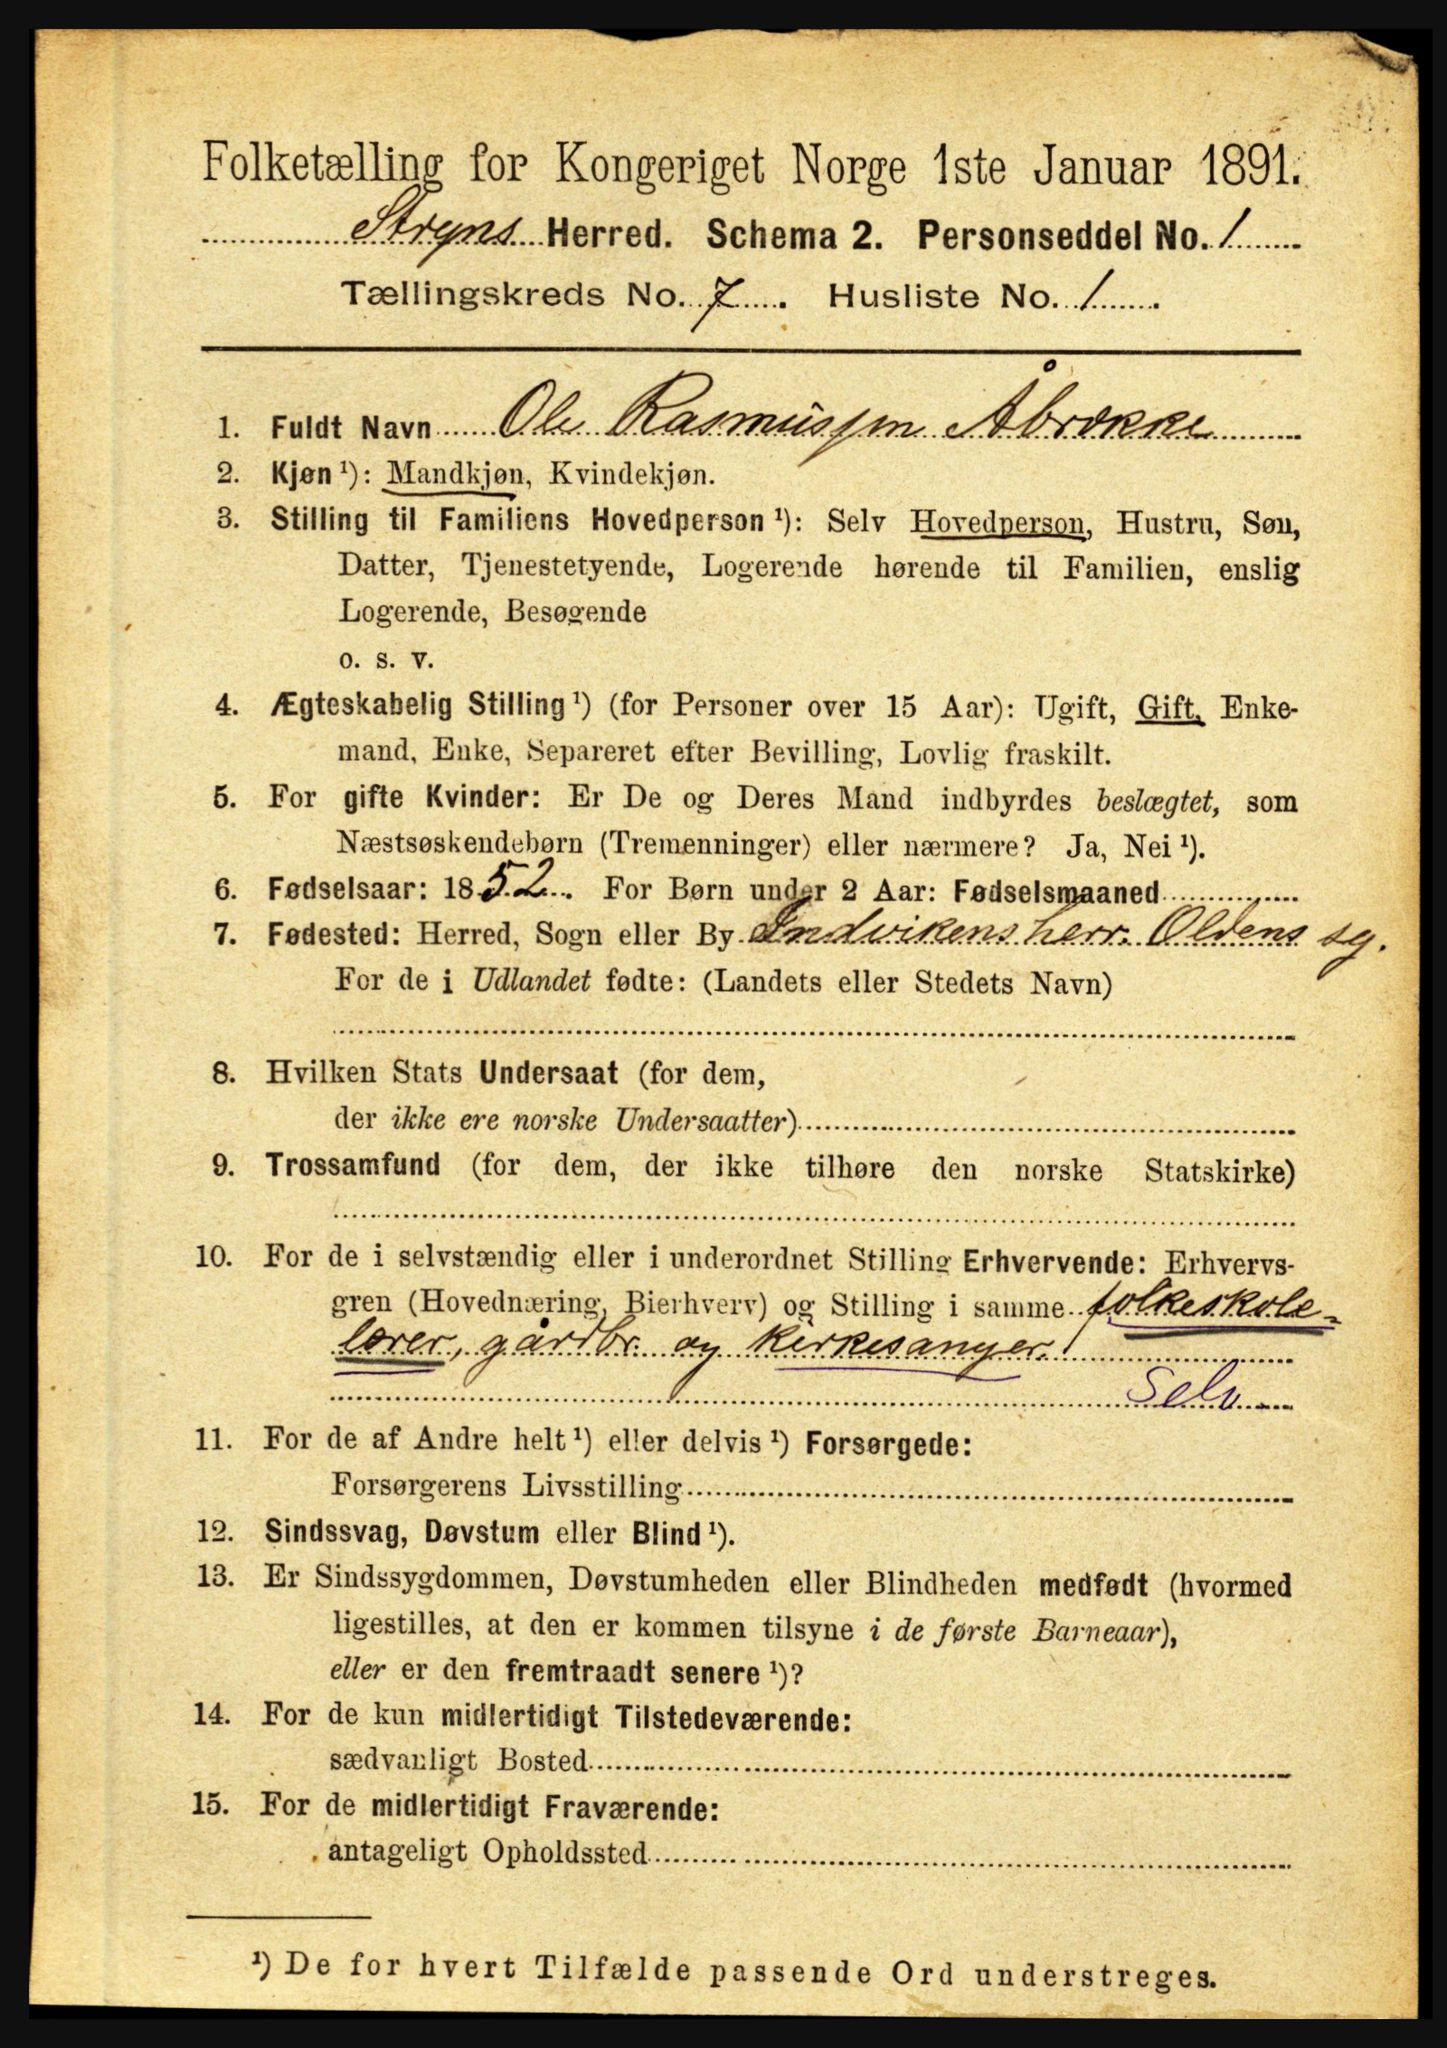 Folketælling for Kongeriget Norge 1ste Januar 1891.
Stryns Herred. Schema 2. Personseddel No. 1
Tællingskreds No. 7. Husliste No. 1
1. Fuldt Navn Ole Rasmussen Åbrække
2. Kjøn ¹): Mandkjøn, Kvindekjøn.
3. Stilling til Familiens Hovedperson ¹): Selv Hovedperson, Hustru, Søn,
Datter, Tjenestetyende, Logerende hørende til Familien, enslig
Logerende, Besøgende
o. s. v.
4. Ægteskabelig Stilling ¹) (for Personer over 15 Aar): Ugift, Gift, Enke-
mand, Enke, Separeret efter Bevilling, Lovlig fraskilt.
5. For gifte Kvinder: Er De og Deres Mand indbyrdes beslægtet, som
Næstsøskendebørn (Tremenninger) eller nærmere? Ja, Nei ¹).
6. Fødselsaar: 1852. For Børn under 2 Aar: Fødselsmaaned
7. Fødested: Herred, Sogn eller By Indvikens herr. Oldens sg.
For de i Udlandet fødte: (Landets eller Stedets Navn)
8. Hvilken Stats Undersaat (for dem,
der ikke ere norske Undersaatter)
9. Trossamfund (for dem, der ikke tilhøre den norske Statskirke)
10. For de i selvstændig eller i underordnet Stilling Erhvervende: Erhvervs-
gren (Hovednæring, Bierhverv) og Stilling i samme folkeskole-
lærer, gårdbr. og kirkesanger.
Selv.
11. For de af Andre helt ¹) eller delvis ¹) Forsørgede:
Forsørgerens Livsstilling
12. Sindssvag, Døvstum eller Blind ¹).
13. Er Sindssygdommen, Døvstumheden eller Blindheden medfødt (hvormed
ligestilles, at den er kommen tilsyne i de første Barneaar),
eller er den fremtraadt senere ¹)?
14. For de kun midlertidigt Tilstedeværende:
sædvanligt Bosted
15. For de midlertidigt Fraværende:
antageligt Opholdssted
¹) De for hvert Tilfælde passende Ord understreges.